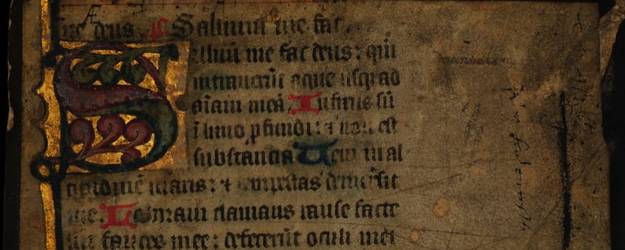 deus. Salvum me fac.
Salvum me fac deus: qm̄
intraverūt aque usq; ad
aīam meā. Infixus sū
ī limo p̄fundi: ⁊ non est
substantia Veni in al
titudinē maris: ⁊ tempestas demersit
me. Laboravi clamans rauce facte
sūt fauces mee: defecerūt oculi mei